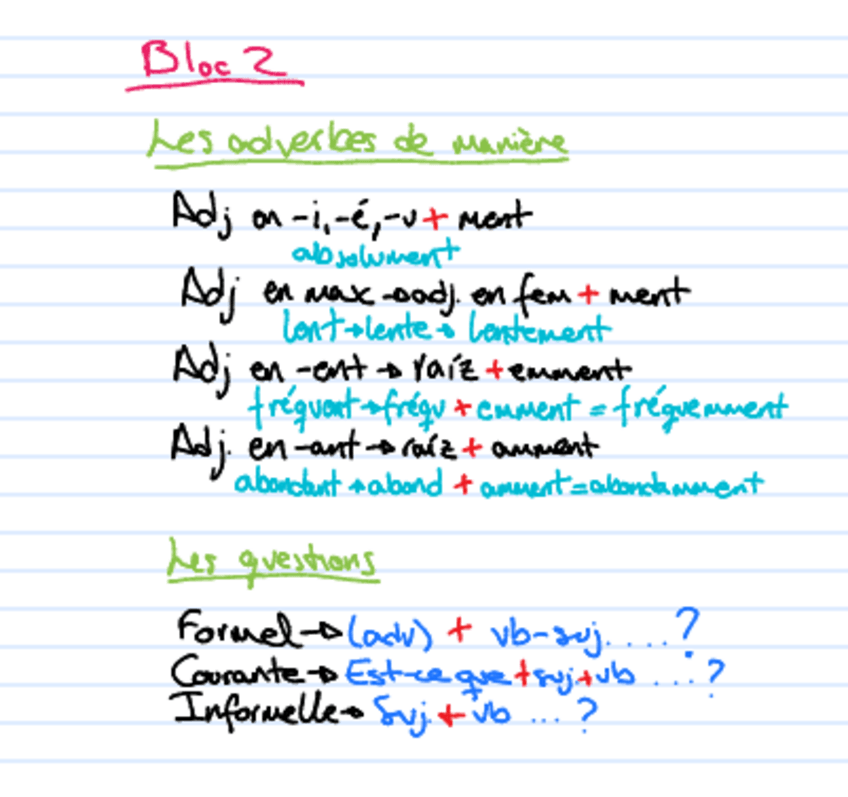 Bloc 2
Les adverbes de manière
Adj en -i, -é, -u + ment
absolument
Adj en max → adj. en fem + ment
lent → lente → lentement
Adj en -ent → raíz + emment
fréquent → fréqu + emment = fréquemment
Adj. en -ant → raíz + amment
abondant → abond + amment = abondamment
Les questions
Formel → (adv) + vb-suj. ... ?
Courante → Est-ce que + suj + vb ... ?
Informelle → Suj. + vb ... ?